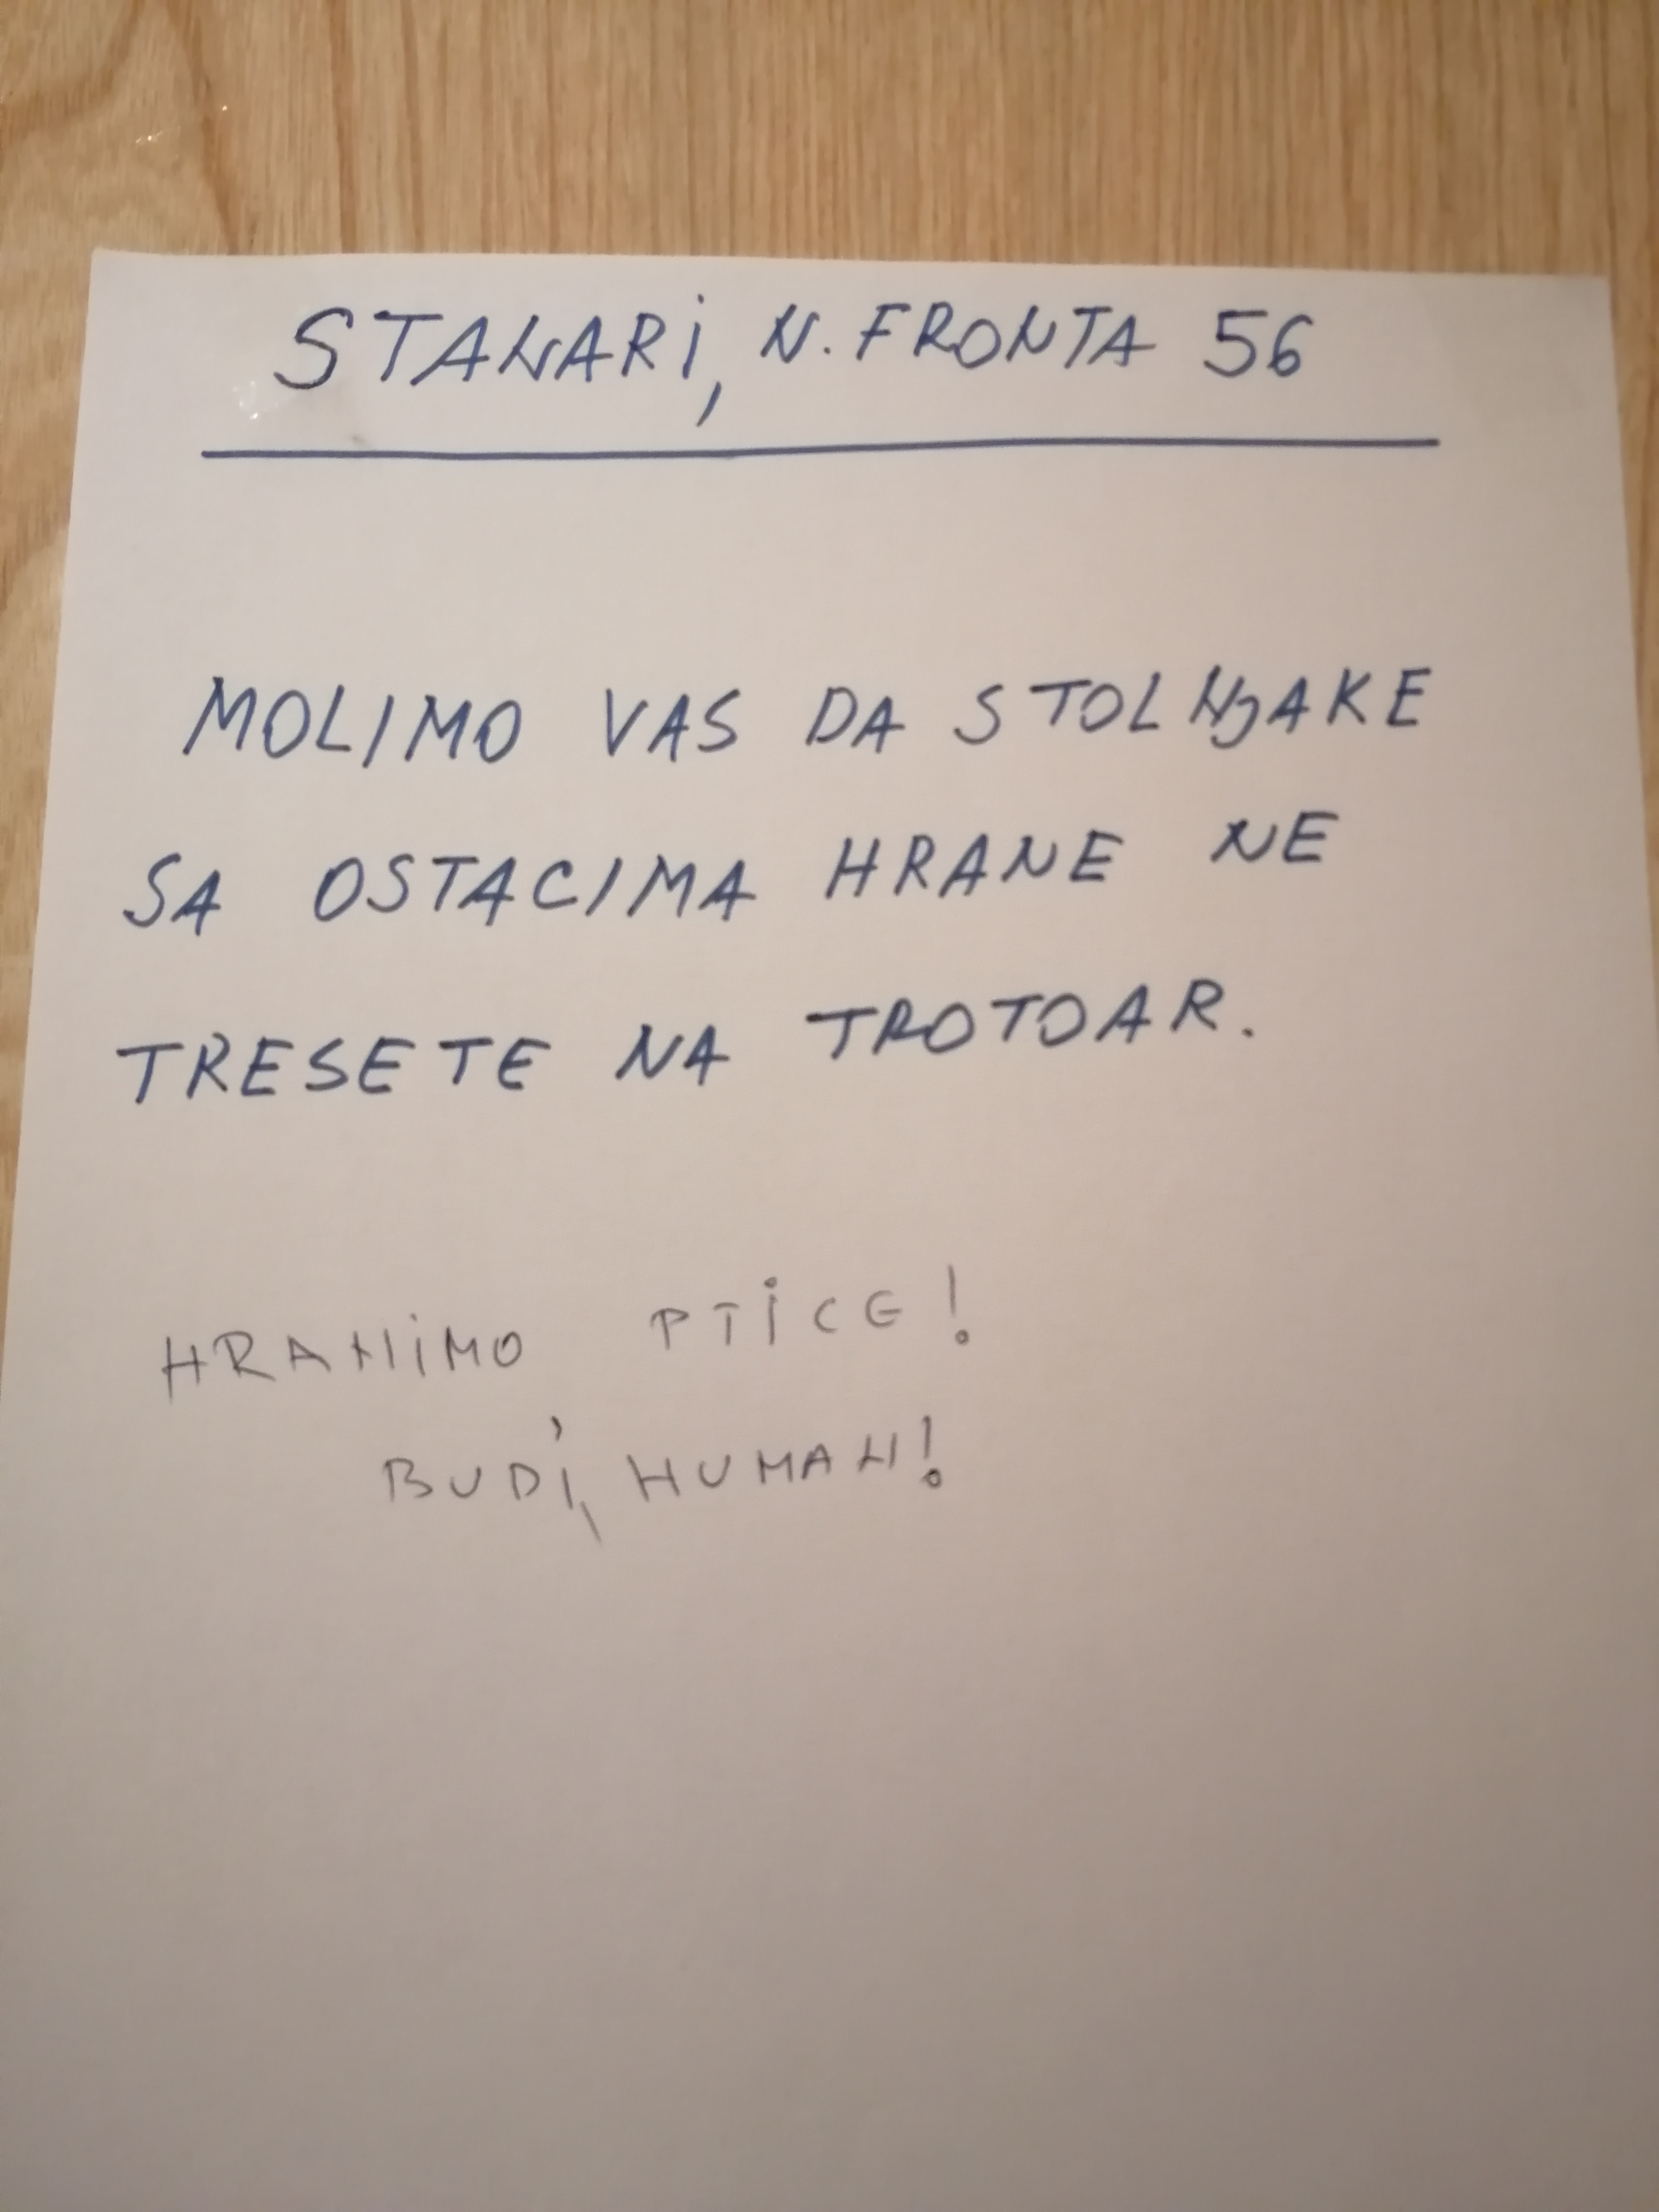 STANARI, N. FRONTA 56
MOLIMO VAS DA STOLNJAKE
SA OSTACIMA HRANE NE
TRESETE NA TROTOAR.
HRANIMO PTICE!
BUDI, HUMAN!